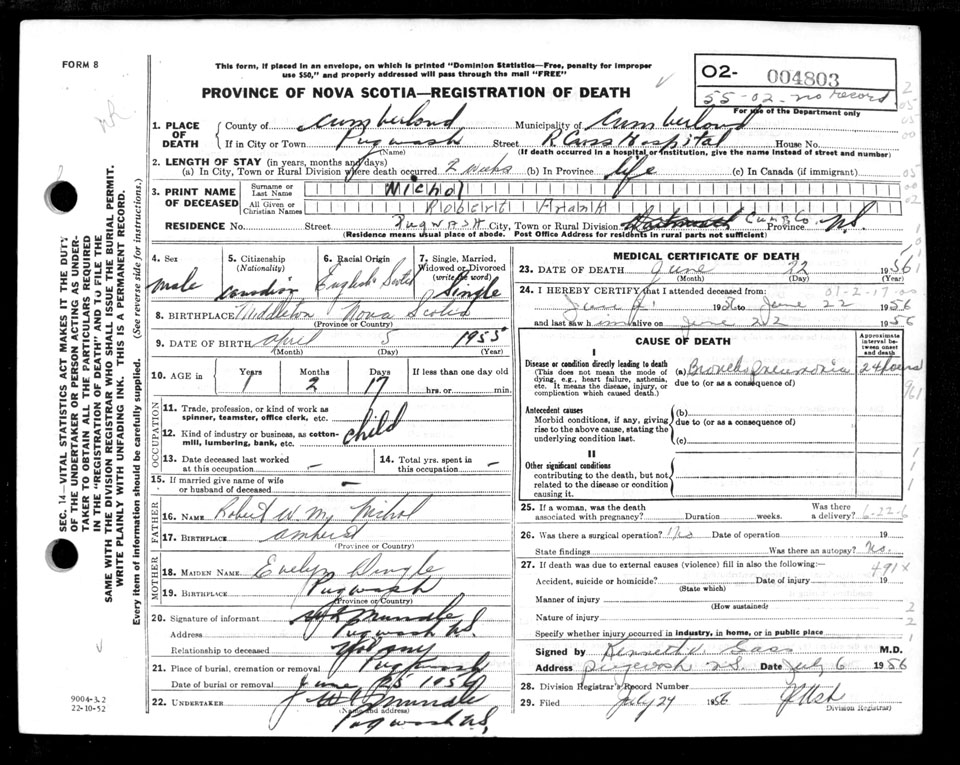 FORM 8
This form, if placed in an envelope, on which is printed "Dominion Statistics—Free, penalty for improper
use $50," and properly addressed will pass through the mail "FREE"
PROVINCE OF NOVA SCOTIA—REGISTRATION OF DEATH
02- 004803
55-02- no record
For use of the Department only
1. PLACE OF DEATH
County of Cumberland Municipality of Cumberland
If in City or Town Pugwash Street R Cross Hospital House No.
(Name) (If death occurred in a hospital or institution, give the name instead of street and number)
2. LENGTH OF STAY (in years, months and days)
(a) In City, Town or Rural Division where death occurred 2 weeks (b) In Province life (c) In Canada (if immigrant)
3. PRINT NAME OF DECEASED
Surname or Last Name Nichol
All Given or Christian Names Robert Frank
RESIDENCE No. Street Pugwash City, Town or Rural Division Cumb Co. Province N.S.
(Residence means usual place of abode. Post Office Address for residents in rural parts not sufficient)
4. Sex
male
5. Citizenship
(Nationality)
Canadian
6. Racial Origin
English Scotch
7. Single, Married, Widowed or Divorced
(write the word)
Single
8. BIRTHPLACE Middleton Nova Scotia
(Province or Country)
9. DATE OF BIRTH April 5 1955
(Month) (Day) (Year)
10. AGE in Years Months Days If less than one day old
1 2 17 hrs. or min.
OCCUPATION
11. Trade, profession, or kind of work as
spinner, teamster, office clerk, etc.
child
12. Kind of industry or business, as cotton-
mill, lumbering, bank, etc.
13. Date deceased last worked
at this occupation –
14. Total yrs. spent in
this occupation –
15. If married give name of wife
or husband of deceased –
FATHER
16. NAME Robert W. M. Nichol
17. BIRTHPLACE Amherst
(Province or Country)
MOTHER
18. MAIDEN NAME Evelyn Dingle
19. BIRTHPLACE Pugwash
(Province or Country)
20. Signature of informant Mundle
Address Pugwash N.S.
Relationship to deceased Not any
21. Place of burial, cremation or removal Pugwash
Date of burial or removal June 25 1956
22. UNDERTAKER Mundle
(Name and address)
Pugwash N.S.
MEDICAL CERTIFICATE OF DEATH
23. DATE OF DEATH June 22 1956
(Month) (Day)
01-2-17-00
24. I HEREBY CERTIFY that I attended deceased from:
June 1956 to June 22 1956
and last saw him alive on June 22 1956
CAUSE OF DEATH
Approximate interval between onset and death
I
Disease or condition directly leading to death
(This does not mean the mode of
dying, e.g., heart failure, asthenia,
etc. It means the disease, injury, or
complication which caused death.)
(a) Broncho pneumonia 24 hours
due to (or as a consequence of)
Antecedent causes
Morbid conditions, if any, giving
rise to the above cause, stating the
underlying condition last.
(b)
due to (or as a consequence of)
(c)
II
Other significant conditions
contributing to the death, but not
related to the disease or condition
causing it.
25. If a woman, was the death
associated with pregnancy? Duration weeks. Was there a delivery?
6-22-6
26. Was there a surgical operation? No Date of operation 19
State findings Was there an autopsy? No.
27. If death was due to external causes (violence) fill in also the following:—
491X
Accident, suicide or homicide? Date of injury 19
(State which)
Manner of injury
(How sustained)
Nature of injury
Specify whether injury occurred in industry, in home, or in public place
Signed by Kenneth V. Gass M.D.
Address Pugwash N.S. Date July 6 1956
28. Division Registrar's Record Number
29. Filed July 24 1956
Division Registrar
SEC. 14—VITAL STATISTICS ACT MAKES IT THE DUTY
OF THE UNDERTAKER OR PERSON ACTING AS UNDER-
TAKER TO OBTAIN ALL THE PARTICULARS REQUIRED
IN THE "REGISTRATION OF DEATH" AND TO FILE THE
SAME WITH THE DIVISION REGISTRAR WHO SHALL ISSUE THE BURIAL PERMIT.
WRITE PLAINLY WITH UNFADING INK. THIS IS A PERMANENT RECORD.
Every item of information should be carefully supplied. (See reverse side for instructions.)
9004-3.2
22-10-52